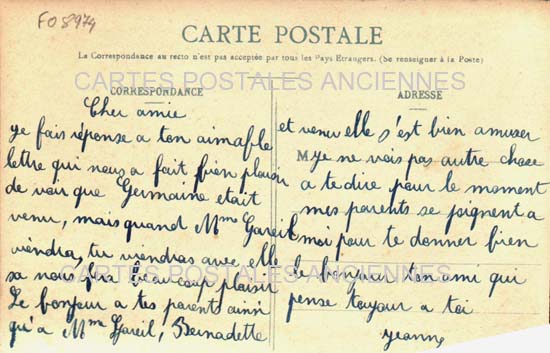 FO 8974
CARTE POSTALE
La Correspondance au recto n'est pas acceptée par tous les Pays Etrangers. (Se renseigner à la Poste)
CARTES POSTALES ANCIENNES
CORRESPONDANCE
Cher amie
je fais réponse a ton aimable
lettre qui nous a fait bien plaisir
de voir que Germaine etait
venu, mais quand Mme Gareil
viendra, tu viendras avec elle
sa nous fera beau coup plaisir
Le bonjour a tes parents ainsi
qu'a Mme Gareil, Bernadette
ADRESSE
et venu elle s'est bien amuser
M
je ne vois pas autre chose
a te dire pour le moment
mes parents se joignent a
moi pour te donner bien
le bonjour ton ami qui
pense toujour a toi
yeanne
CARTES POSTALES ANCIENNES